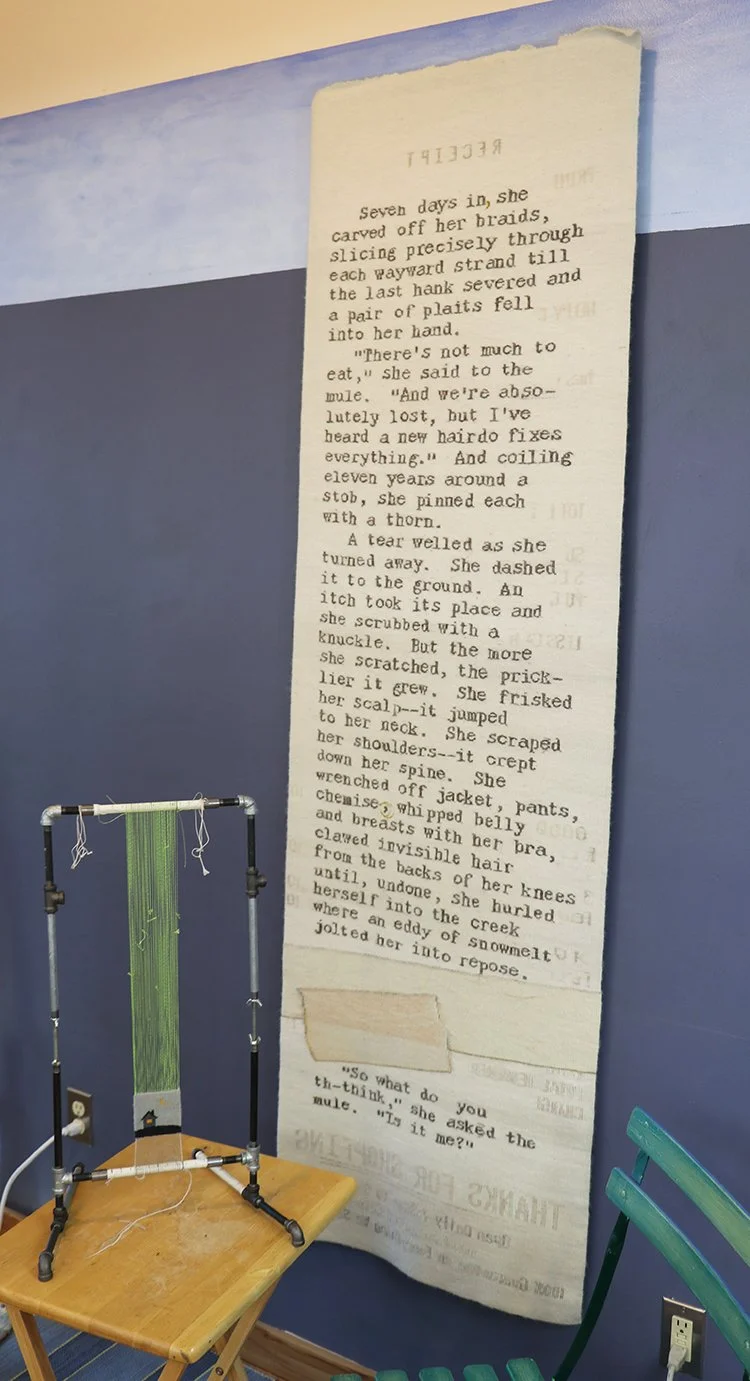 RECEIPT
Seven days in, she
carved off her braids,
slicing precisely through
each wayward strand till
the last hank severed and
a pair of plaits fell
into her hand.
"There's not much to
eat," she said to the
mule. "And we're abso-
lutely lost, but I've
heard a new hairdo fixes
everything." And coiling
eleven years around a
stob, she pinned each
with a thorn.
A tear welled as she
turned away. She dashed
it to the ground. An
itch took its place and
she scrubbed with a
knuckle. But the more
she scratched, the prick-
lier it grew. She frisked
her scalp--it jumped
to her neck. She scraped
her shoulders--it crept
down her spine. She
wrenched off jacket, pants,
chemise, whipped belly
and breasts with her bra,
clawed invisible hair
from the backs of her knees
until, undone, she hurled
herself into the creek
where an eddy of snowmelt
jolted her into repose.
"So what do you
th-think," she asked the
mule. "Is it me?"
CHANGE
THANKS FOR SHOPPING
Open Daily